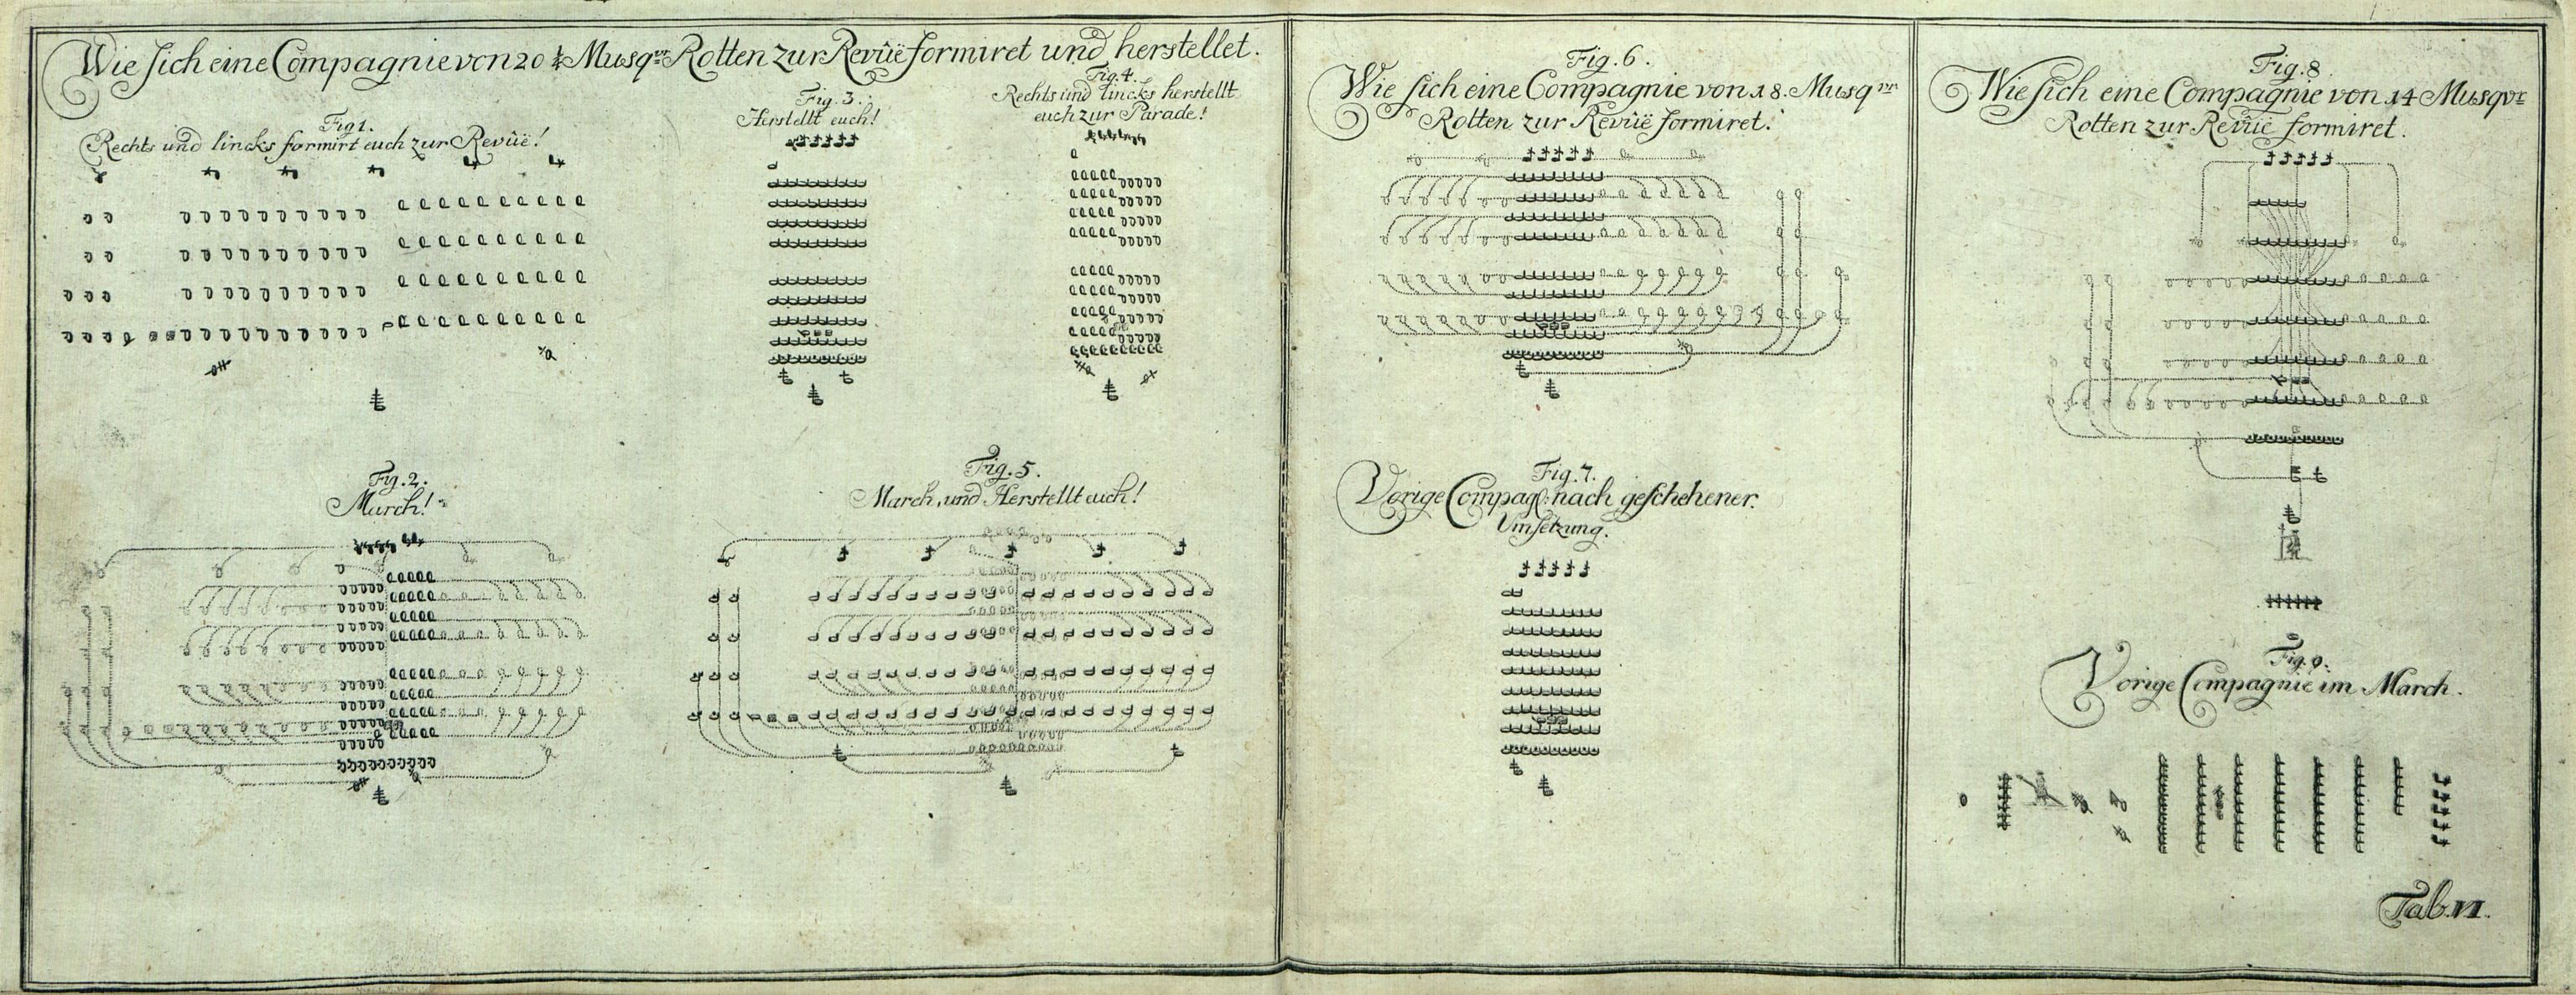 Wie sich eine Compagnie von 20 ¼ Musqr: Rotten zur Revüe formiret und herstellet.
Fig 1.
Rechts und lincks formirt euch zur Revüe!
Fig. 3.
Herstellt euch!
Fig. 4.
Rechts und lincks herstellt
euch zur Parade!
Fig. 2.
March!
Fig. 5.
March, und Herstellt euch!
Fig. 6.
Wie sich eine Compagnie von 18. Musqr
Rotten zur Revüe formiret.
Fig. 7.
Vorige Compag: nach geschehener
Umsetzung.
Fig. 8.
Wie sich eine Compagnie von 14 Musqr
Rotten zur Revüe formiret.
Fig. 9.
Vorige Compagnie im March.
Tab. VI.